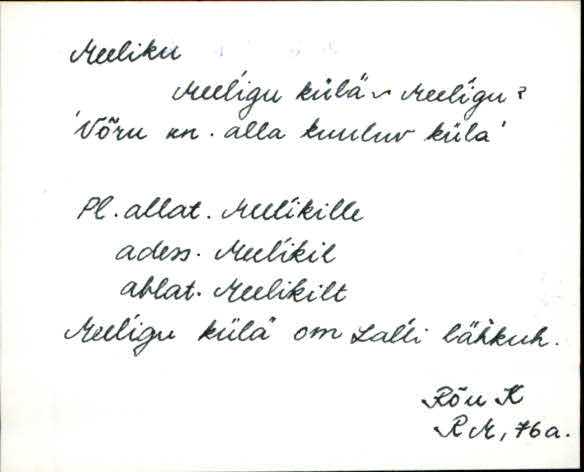 Meeliku
Meeĺigu külä ~ Meeĺigu?
'Võru kn. alla kuuluv küla'
Pl. allat. Meeĺikille
adess. Meeĺikil
ablat. Meelikilt
Meeĺigu külä om Laĺli lähkuh.
Rõu K
R M, 76a.